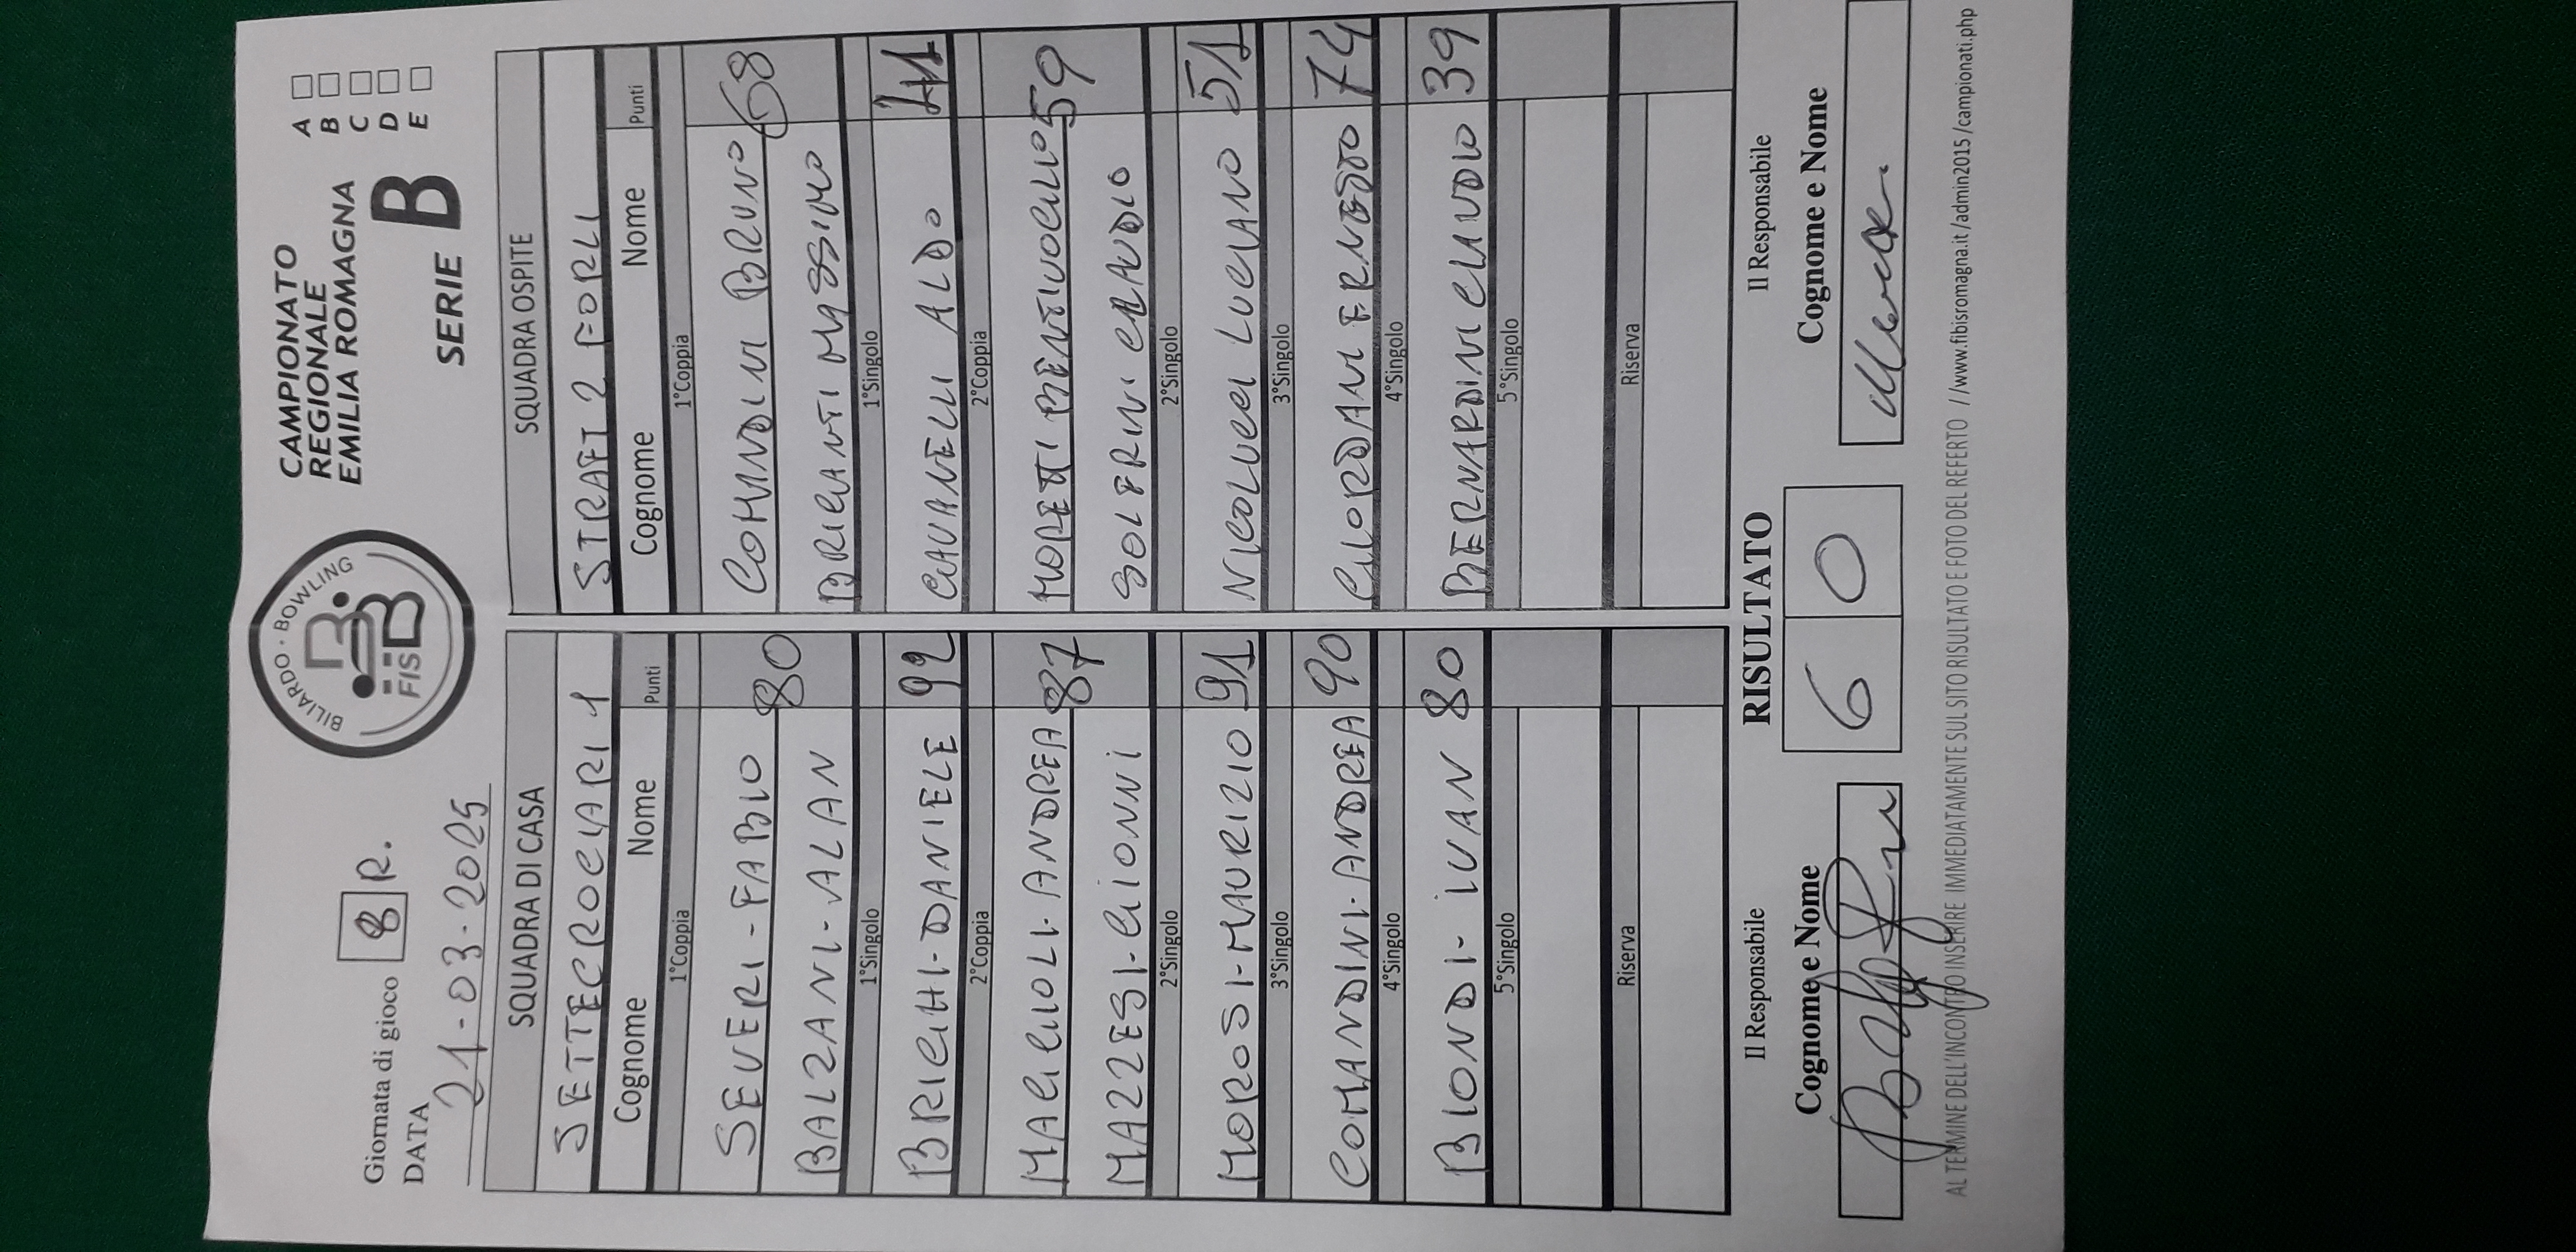 Giornata di gioco 8 R.
DATA 21-03-2025
BILIARDO · BOWLING
FISBB
CAMPIONATO
REGIONALE
EMILIA ROMAGNA
SERIE B
A
B
C
D
E
SQUADRA DI CASA SQUADRA OSPITE
SETTECROCIARI 1 STRAFT 2 FORLI
Cognome Nome Punti Cognome Nome Punti
1°Coppia 1°Coppia
SEVERI-FABIO 80 COMANDINI BRUNO 68
BALZANI-ALAN BRIGANTI MASSIMO
1°Singolo 1°Singolo
BRIGHI-DANIELE 92 GAVANELLI ALDO
2°Coppia 2°Coppia
MAGGIOLI-ANDREA 87 MORETTI BENTIVOGLIO 59
MAZZESI-GIONNI SOLFRINI CLAUDIO
2°Singolo 2°Singolo
MOROSI-MAURIZIO 91 NICOLUCCI LUCIANO 51
3°Singolo 3°Singolo
COMANDINI-ANDREA 90 GIORDANI ERNESTO 74
4°Singolo 4°Singolo
BIONDI-IVAN 80 BERNARDINI CLAUDIO 39
5°Singolo 5°Singolo
Riserva Riserva
Il Responsabile RISULTATO Il Responsabile
Cognome e Nome 6 0 Cognome e Nome
AL TERMINE DELL'INCONTRO INSERIRE IMMEDIATAMENTE SUL SITO RISULTATO E FOTO DEL REFERTO //www.fibisromagna.it/admin2015/campionati.php